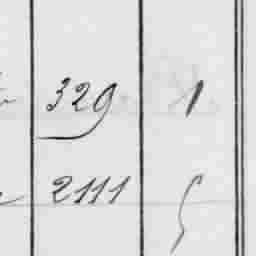 329 1
2111 5